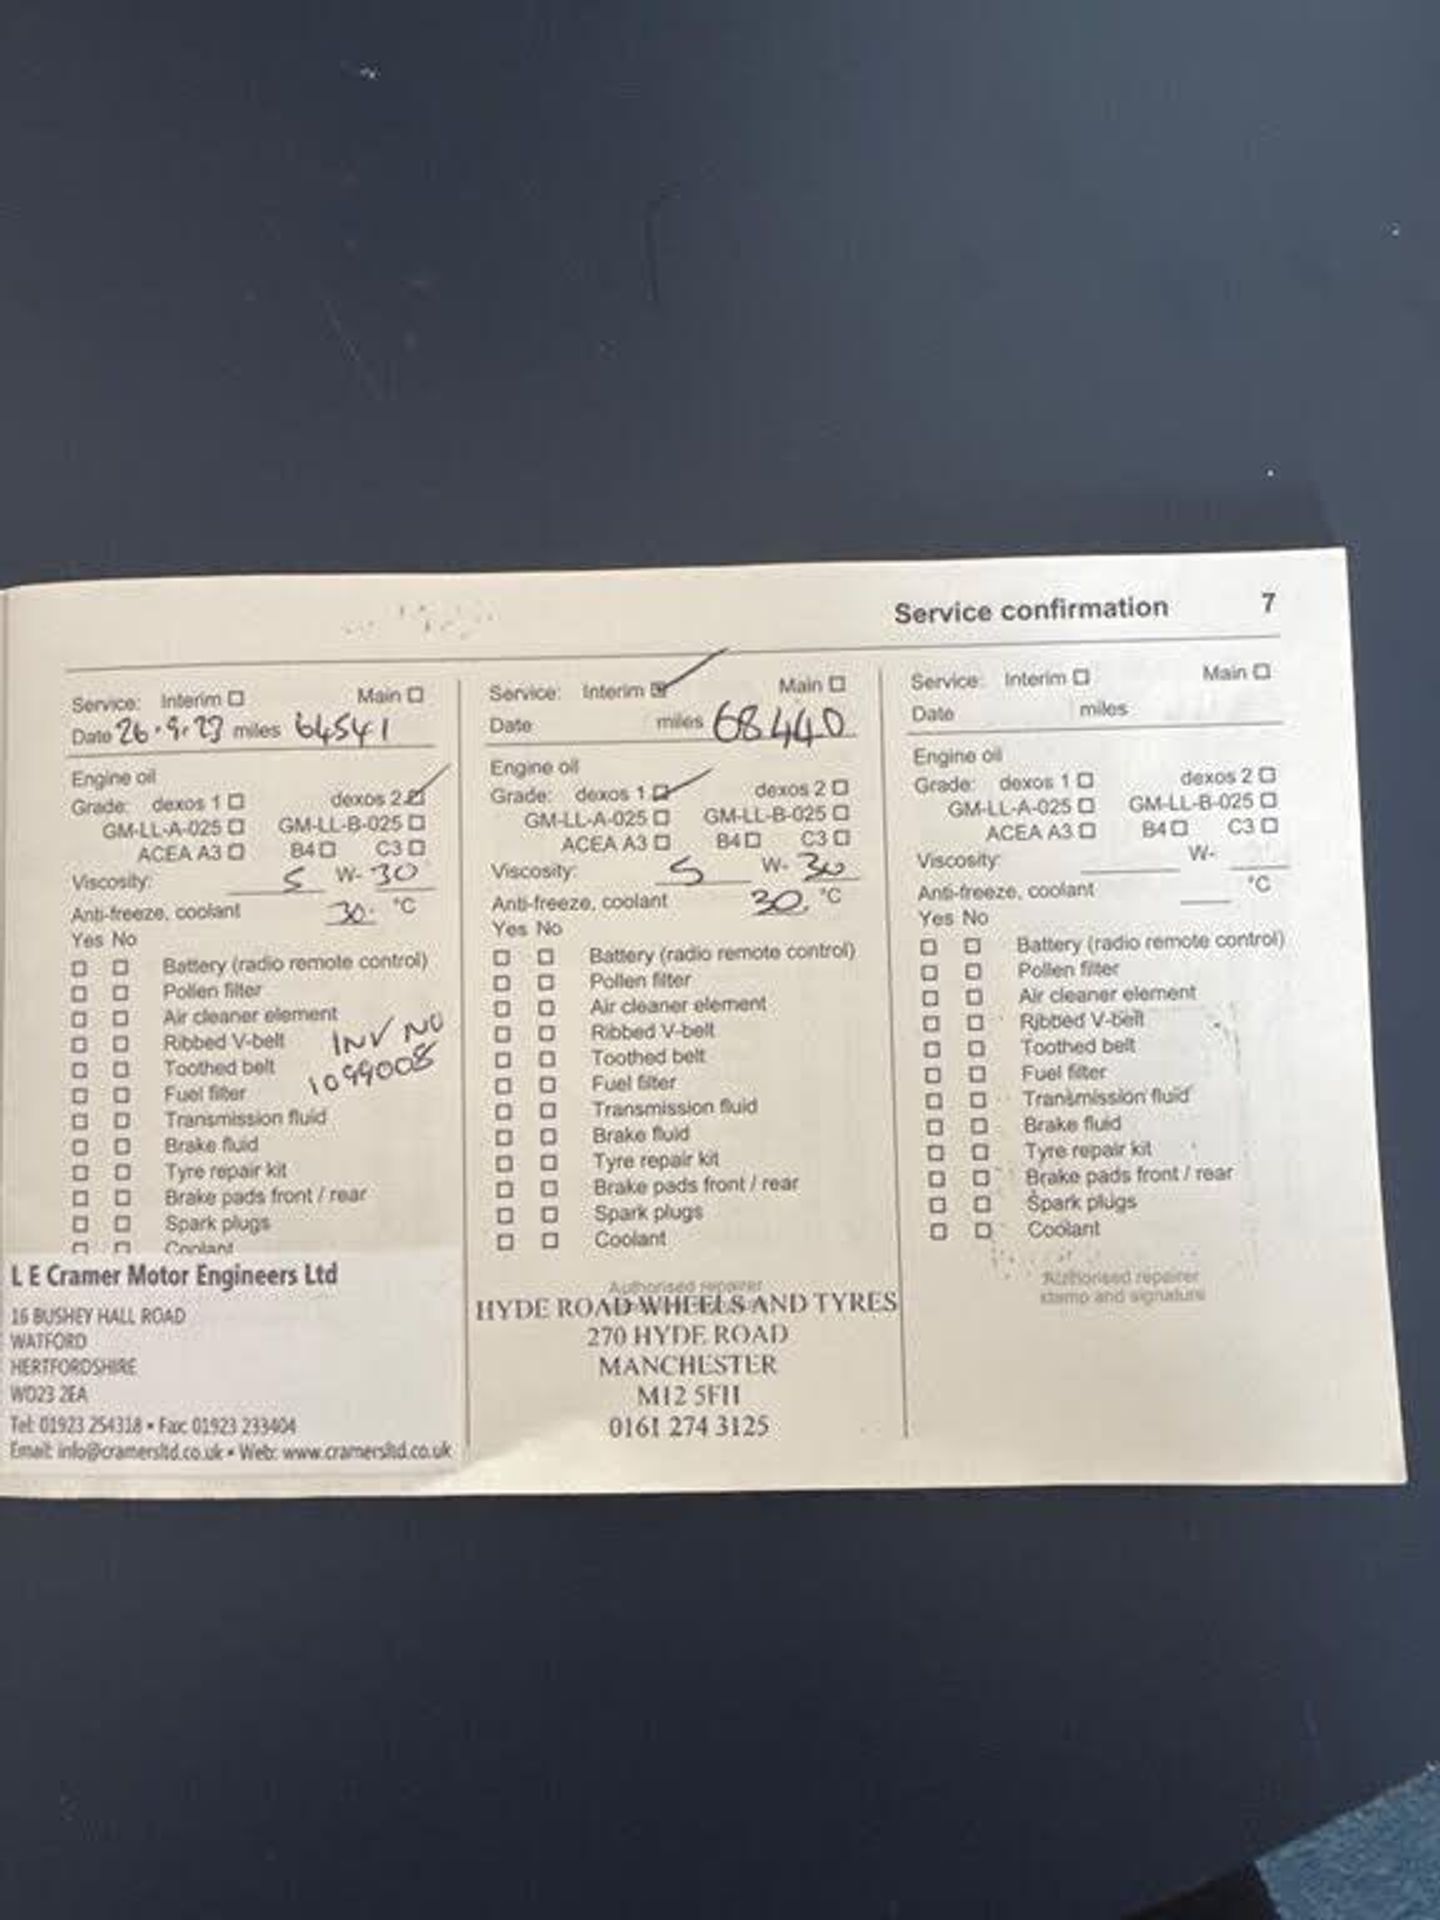 Service confirmation 7
Service: Interim Main
Date 26.9.23 miles 64541
Engine oil
Grade: dexos 1 dexos 2
GM-LL-A-025 GM-LL-B-025
ACEA A3 B4 C3
Viscosity: 5 W- 30
Anti-freeze, coolant 30. °C
Yes No
Battery (radio remote control)
Pollen filter
Air cleaner element
Ribbed V-belt
Toothed belt
INV NO
1099008
Fuel filter
Transmission fluid
Brake fluid
Tyre repair kit
Brake pads front / rear
Spark plugs
Coolant
L E Cramer Motor Engineers Ltd
16 BUSHEY HALL ROAD
WATFORD
HERTFORDSHIRE
WD23 2EA
Tel: 01923 254318 • Fax: 01923 233404
Email: info@cramersltd.co.uk • Web: www.cramersltd.co.uk
Service: Interim Main
Date miles 68440
Engine oil
Grade: dexos 1 dexos 2
GM-LL-A-025 GM-LL-B-025
ACEA A3 B4 C3
Viscosity: 5 W- 30
Anti-freeze, coolant 30. °C
Yes No
Battery (radio remote control)
Pollen filter
Air cleaner element
Ribbed V-belt
Toothed belt
Fuel filter
Transmission fluid
Brake fluid
Tyre repair kit
Brake pads front / rear
Spark plugs
Coolant
Authorised repairer
HYDE ROAD WHEELS AND TYRES
270 HYDE ROAD
MANCHESTER
M12 5FH
0161 274 3125
Service: Interim Main
Date miles
Engine oil
Grade: dexos 1 dexos 2
GM-LL-A-025 GM-LL-B-025
ACEA A3 B4 C3
Viscosity: W-
Anti-freeze, coolant °C
Yes No
Battery (radio remote control)
Pollen filter
Air cleaner element
Ribbed V-belt
Toothed belt
Fuel filter
Transmission fluid
Brake fluid
Tyre repair kit
Brake pads front / rear
Spark plugs
Coolant
Authorised repairer
stamp and signature